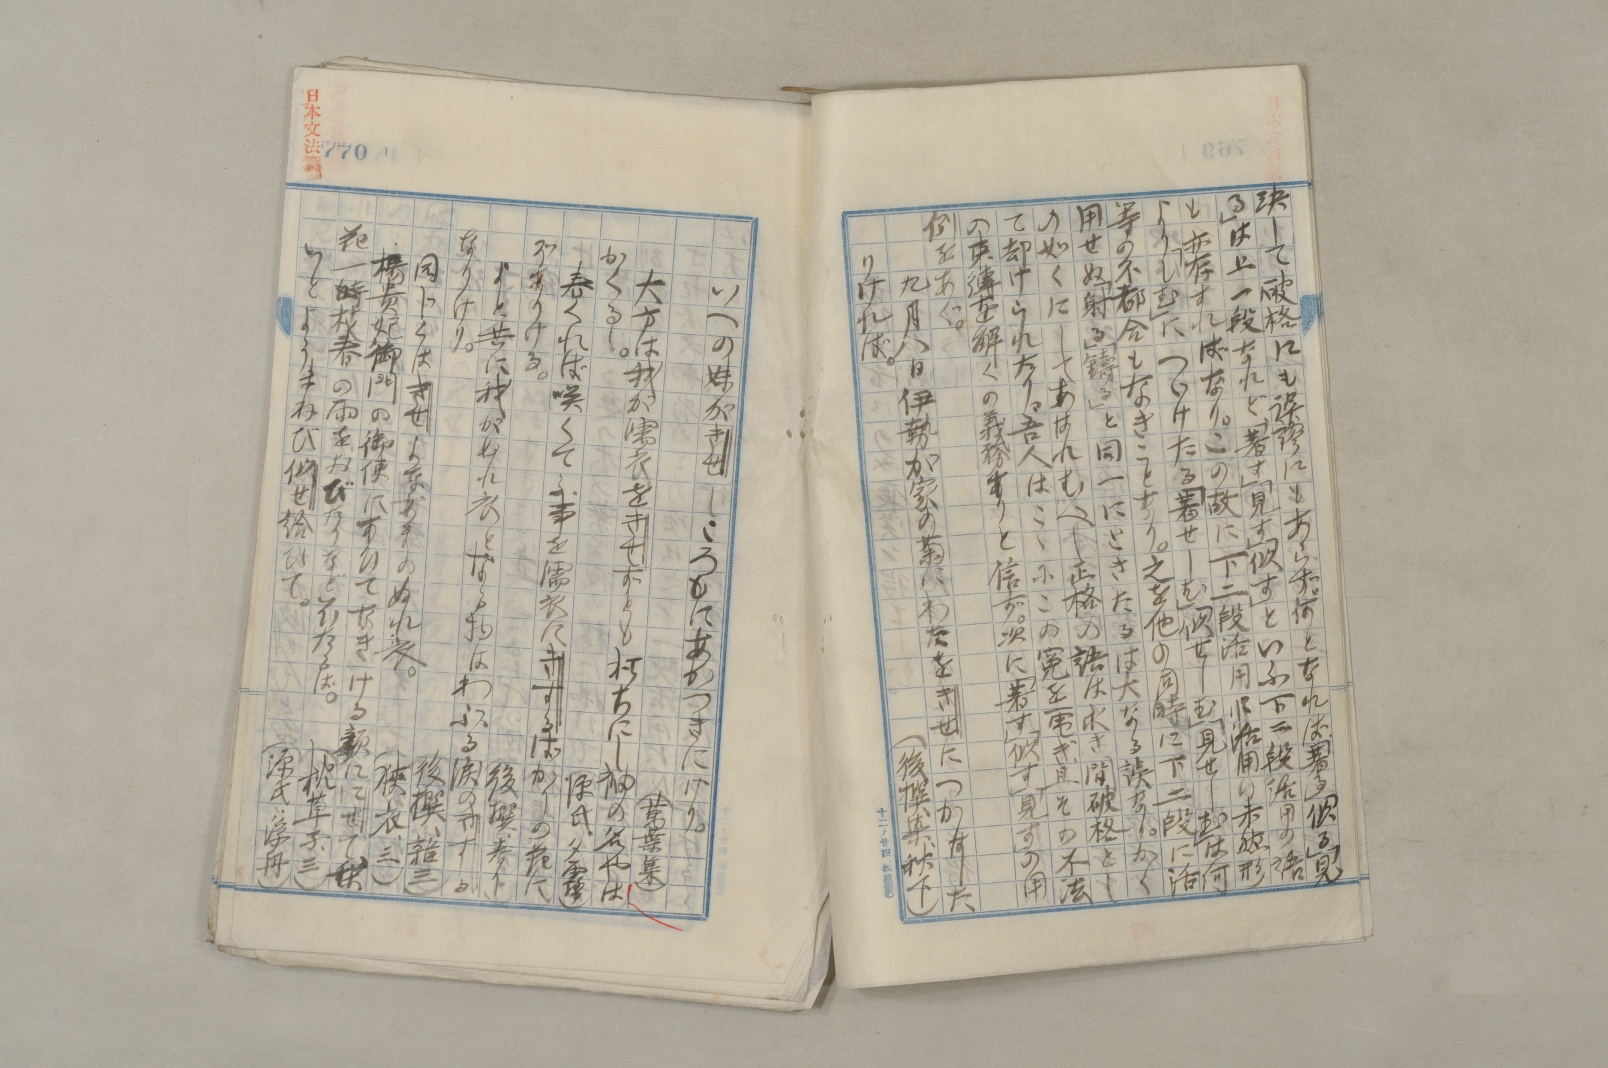 決して破格にも誤謬にもあらず何となれば「着る」「似る」「見
る」は上一段なれど「着す」「見す」「似す」といふ下二段活用の語
も亦存すればなり。この故に下二段活用に活用の未然形
より「む」につゞけたる「着せーむ」「似せーむ」「見せーむ」は何
等の不都合もなきことなり。之を他の同時に下二段に活
用せぬ「射る」「鋳る」と同一にときたるは大なる誤なり。かく
の如くにしてあはれむべし正格の語は永き間破格とし
て却けられたり。吾人はこゝにこの冤を雪ぎ且その不法
の束縛を解くの義務ありと信ず。次に「着す」「似す」「見す」の用
例をあぐ。
九月八日伊勢が家の菊にわたをきせにつかはした
りければ。
(後撰集、秋下)
十二ノ廿四
日本文法
770
いへの妹がきせしころもにあかつきにけり。
(萬葉集)
大方は我が濡衣をきせずとも朽ちにし袖の名やは
かくるゝ。
(源氏、夕霧)
春くれば咲くてふ事を濡衣にきするばかりの花に
ぞありける。
(後撰、春下)
よと共に我がぬれ衣となる物はわぶる涙のきする
なりけり。
(後撰、雜三)
同じくはきせよなあまのぬれ衣。
(狭衣、三)
楊貴妃御門の御使にあひてなきける顔ににせて梨
花一時枝春の雨をおびたりなどいひたるは。
(枕草子、三)
いとようまねび似せ給ひて。
(源氏、浮舟)